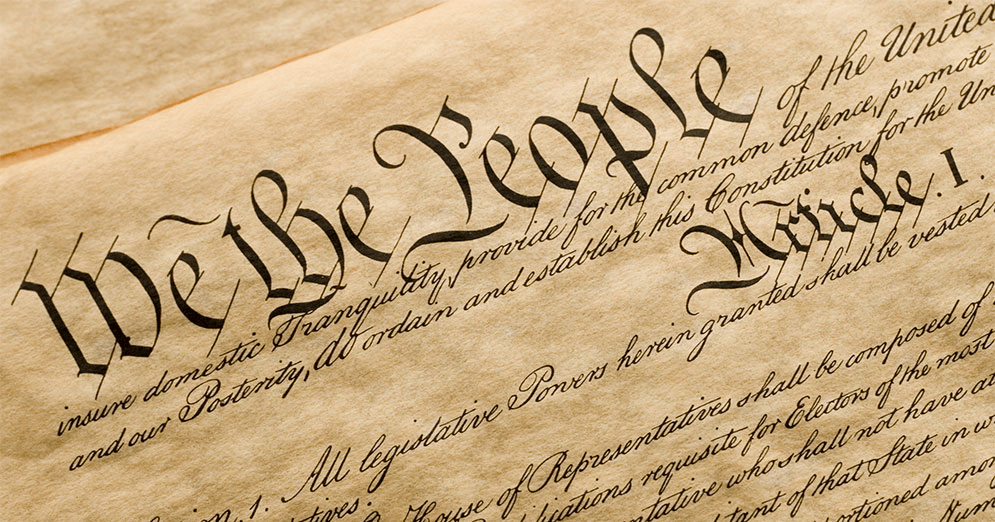 We the People of the United
insure domestic Tranquility, provide for the common defence, promote
and our Posterity, do ordain and establish this Constitution for the Un
Article. I.
1. All legislative Powers herein granted shall be vested
House of Representatives shall be composed of
ications requisite for Electors of the most
entative who shall not have at
tant of that State in w
ortioned amon
Num